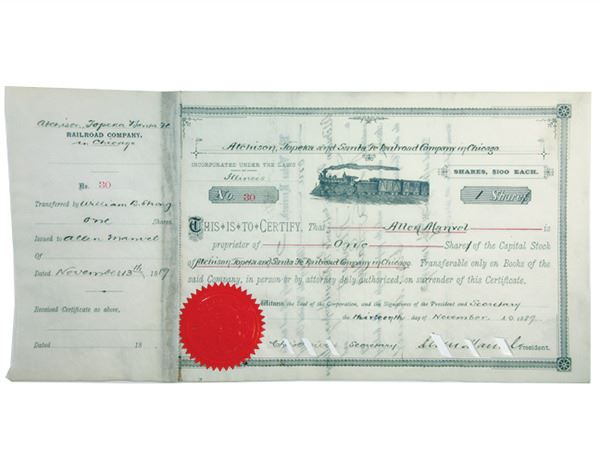 Atchison, Topeka & Santa Fe
RAILROAD COMPANY.
in Chicago
No. 30
Transferred by William B. Strong
one Shares
Issued to Allen Manvel
Of
Dated November 13th 1889
Received Certificate as above,
Dated 18
Atchison, Topeka and Santa Fe Railroad Company in Chicago.
INCORPORATED UNDER THE LAWS
OF
Illinois
SHARES, $100 EACH.
No. 30
1 Share
THIS IS TO CERTIFY, That Allen Manvel is
proprietor of One Share of the Capital Stock
of Atchison, Topeka and Santa Fe Railroad Company in Chicago. Transferable only on Books of the
said Company, in person or by attorney duly authorized, on surrender of this Certificate.
Witness the Seal of the Corporation, and the Signatures of the President and Secretary
the thirteenth day of November A.D. 1889.
Secretary
President.